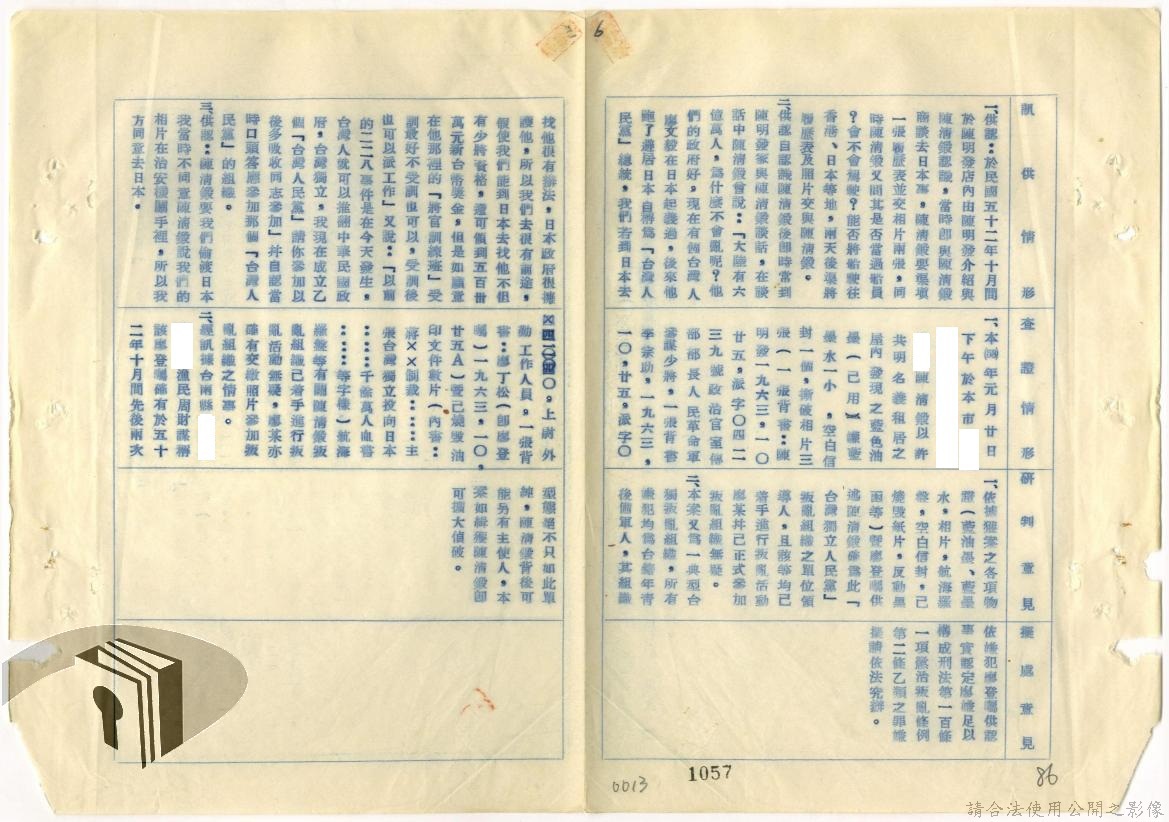 6
訊供情形
一、供認：於民國五十二年十月間
於陳明發店內由陳明發介紹與
陳清鍛認識，當時即與陳清鍛
商談去日本事，陳清鍛要渠填
一張履歷表並交相片兩張，同
時陳清鍛又問其是否當過船員
？會不會駕駛？能否將船駛往
香港、日本等地，兩天後渠將
履歷表及照片交與陳清鍛。
二、供認自認識陳清鍛後即時常到
陳明發家與陳清鍛談話，在談
話中陳清鍛曾說：「大陸有六
億萬人，為什麼不會亂呢？他
們的政府好。現在有個台灣人
廖文毅在日本起義過，後來他
跑了還居日本自稱為「台灣人
民黨」總統，我們若到日本去
查證情形
一、本(53)年元月廿日
下午於本市
陳清鍛以許
共明名義租居之
屋內發現之藍色油
墨（已用）一罐藍
墨水一小，空白信
封一個，撕破相片三
張（一張背書：陳
明發一九六三，一〇
廿五，派字〇四二
三九號政治官室傳
部部長人民革命軍
籌謀少將，一張背書
李宗助，一九六三，
一〇，廿五，派字〇
研判意見
一、依據獲案之各項物
證（藍油墨、藍墨
水，相片，航海羅
盤，空白信封，已
燒毀紙片，反動黑
函等）暨廖登囑供
述陳清鍛確為此「
台灣獨立人民黨」
叛亂組織之單位領
導人，且該等均已
著手進行叛亂活動
廖某並已正式參加
叛亂組織無疑。
二、本案又為一典型台
獨叛亂組織，所有
嫌犯均為台籍年青
後備軍人，其組織
擬處意見
依嫌犯廖登囑供認
事實認定廖嫌足以
構成刑法第一百條
一項懲治叛亂條例
第二條乙類之罪嫌
擬請依法究辦。
找他很有辦法，日本政府很擁
護他，所以我們去很有前途，
假使我們能到日本去找他不但
有少將資格，還可領到五百卅
萬元新台幣獎金，但是如願意
在他那裡的「將官訓練班」受
訓最好不受訓也可以，受訓後
也可以派工作」又說：「以前
的二二八事件是在今天發生，
台灣人就可以推翻中華民國政
府，台灣獨立，我現在成立乙
個「台灣人民黨」請你參加以
後多吸收同志參加」并自認當
時口頭答應參加那個「台灣人
民黨」的組織。
三、供認：陳清鍛要我們偷渡日本
我當時不同意陳清鍛說我們的
相片在治安機關手裡，所以我
方同意去日本。
四〇〇四〇。上尉外
動工作人員。一張背
書：廖丁松（即廖登
囑）一九六三，一〇，
廿五Ａ）暨已燒毀油
印文件數片（內書：
蔣××制裁……主
張台灣獨立投向日本
……千餘萬人血書
……等字樣）航海
羅盤等有關陳清鍛叛
亂組織已着手進行叛
亂活動無疑，廖某亦
確有交繳照片參加叛
亂組織之情事。
二、經訊據台南縣
漁民周財謀稱
該廖登囑確有於五十
二年十月間先後兩次
型態絕不只如此單
純，陳清鍛背後可
能另有主使人，本
案如緝獲陳清鍛即
可擴大偵破。
0013
1057
86
請合法使用公開之影像